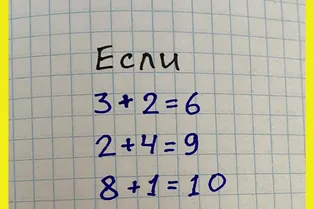 Если
3+2=6
2+4=9
8+1=10